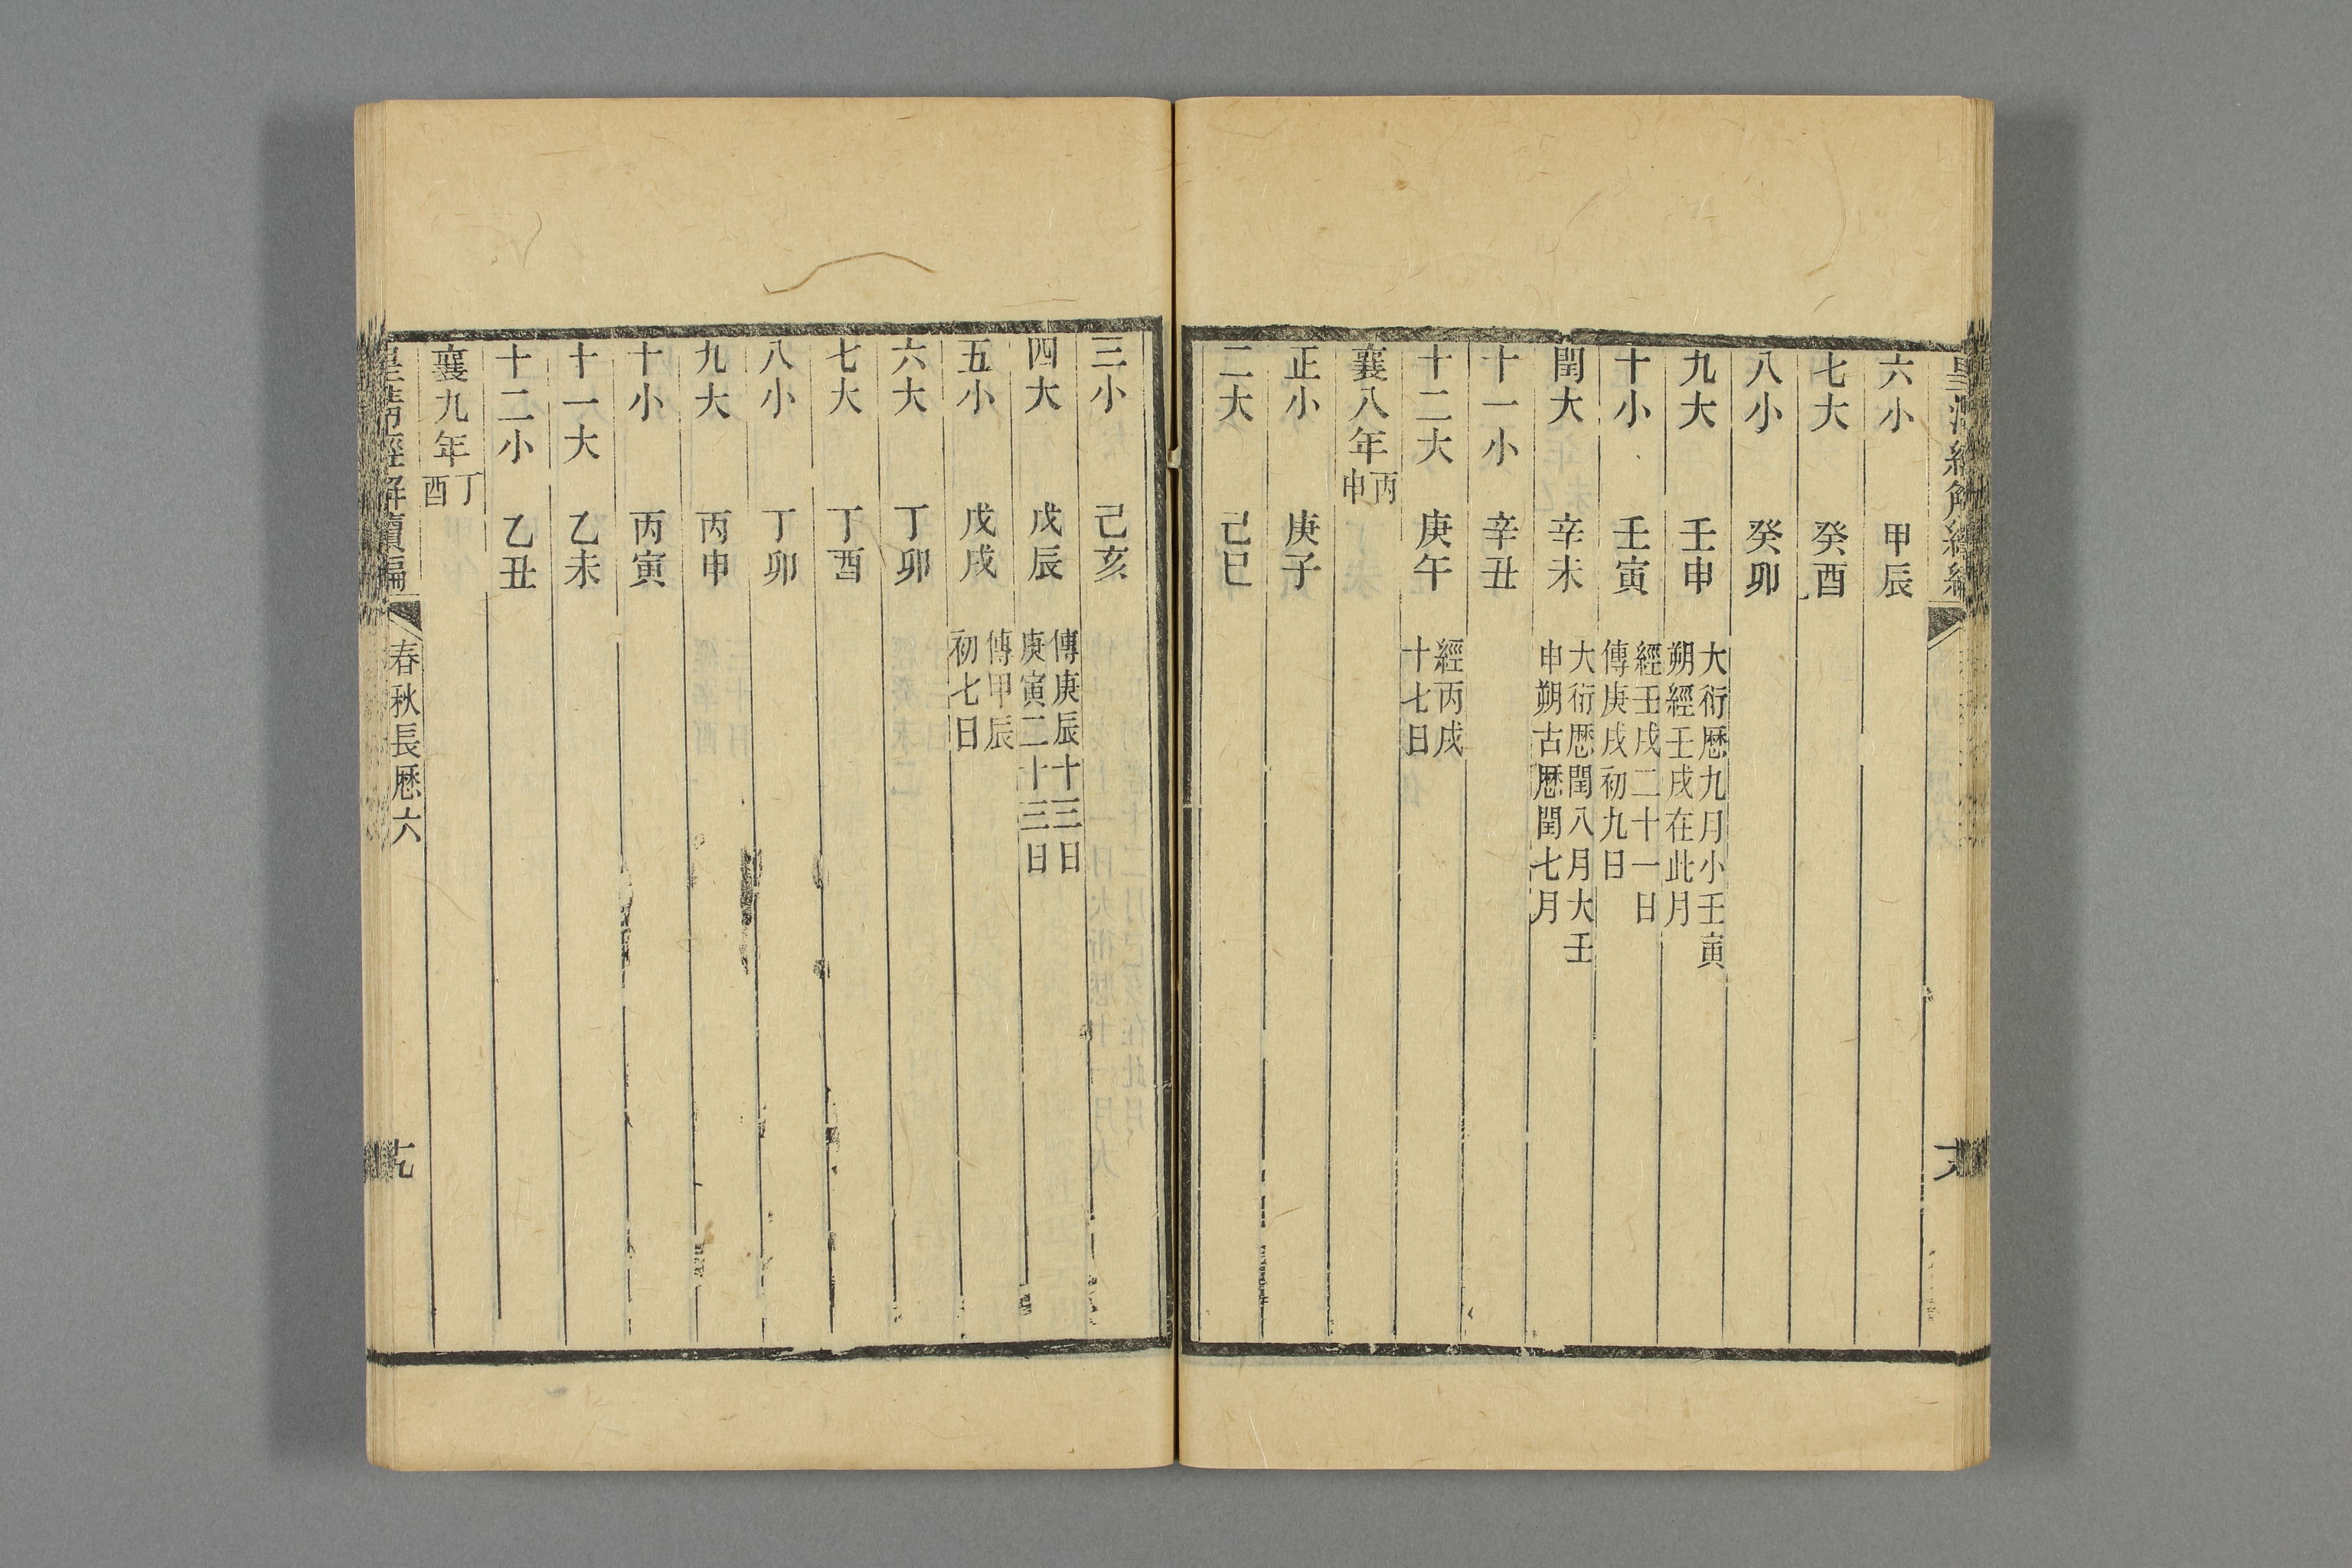 六小 甲辰
七大 癸酉
八小 癸卯
九大 壬申 大衍厯九月小壬寅
朔經壬戌在此月
十小 壬寅 經壬戌二十一日
傳庚戌初九日
閏大 辛未 大衍厯閏八月大壬
申朔古厯閏七月
十一小 辛丑
十二大 庚午 經丙戌
十七日
襄八年 丙申
正小 庚子
二大 己巳
三小 己亥
四大 戊辰 傳庚辰十三日
庚寅二十三日
五小 戊戌 傳甲辰
初七日
六大 丁卯
七大 丁酉
八小 丁卯
九大 丙申
十小 丙寅
十一大 乙未
十二小 乙丑
襄九年 丁酉
皇清經解續編
春秋長厯六